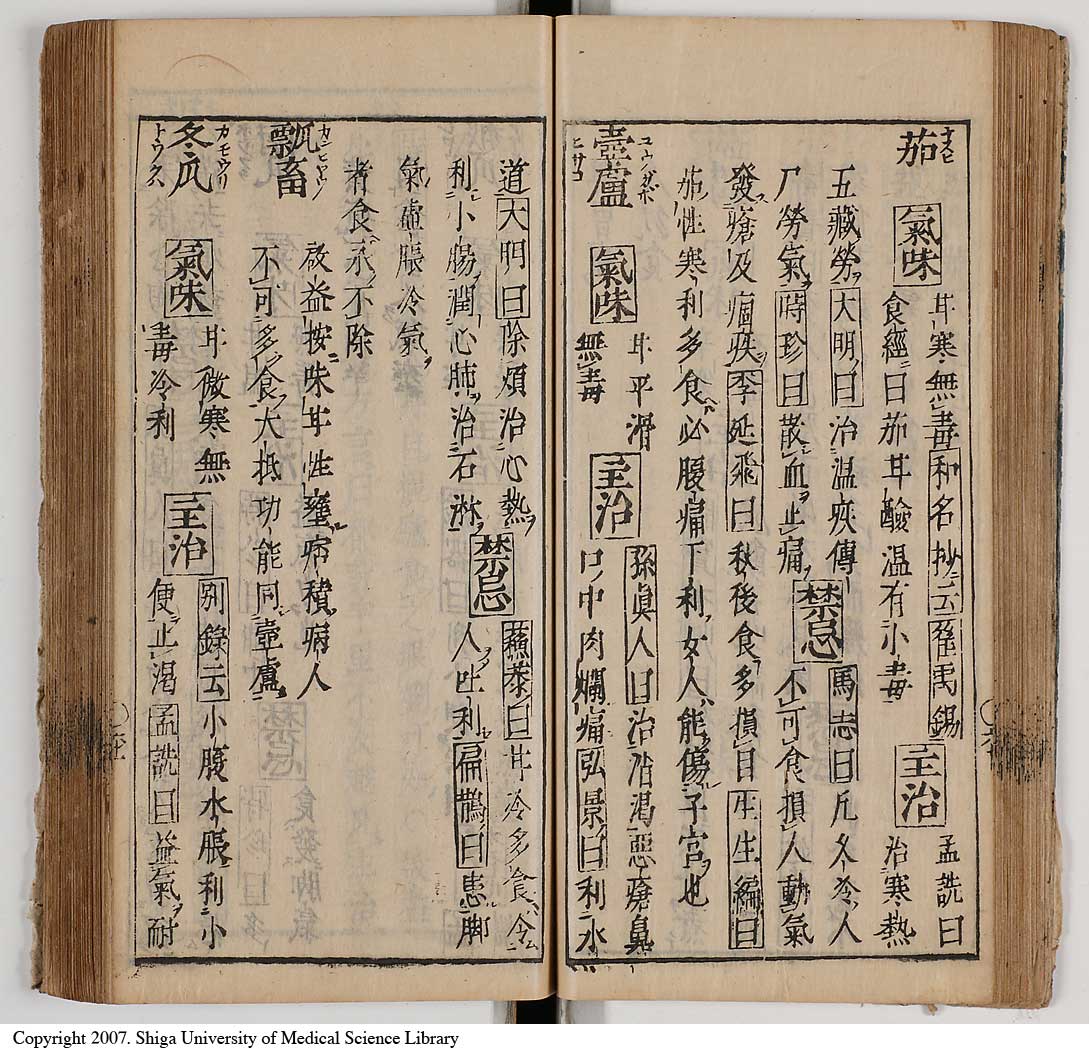 茄 ナスヒ
氣味
甘寒無毒和名抄云崔禹錫
食經曰茄甘醶温有小毒
主治
孟詵曰
治寒熱
五藏勞大明曰治温疾傳
尸勞氣時珍曰散血止痛
禁忌
馬志曰凡久冷人
不可食損人動氣
發瘡及痼疾李延飛曰秋後食多損目生生編曰
茄性寒利多食必腹痛下利女人能傷子宮也
壺盧 ユウガホ ヒサコ
氣味
甘平滑
無毒
主治
孫眞人曰治消渴惡瘡鼻
口中肉爛痛弘景曰利水
道大明曰除煩治心熱
利小腸潤心肺治石淋
禁忌
蘇恭曰甘冷多食令
人吐利扁鵲曰患脚
氣虛脹冷氣
者食之永不除
瓢畜
啟益按味甘性壅痞積病人
不可多食大抵功能同壺盧
冬瓜 カモウリ トウクハ
氣味
甘微寒無
毒冷利
主治
別錄云小腹水脹利小
便止渴孟詵曰益氣耐
Copyright 2007. Shiga University of Medical Science Library